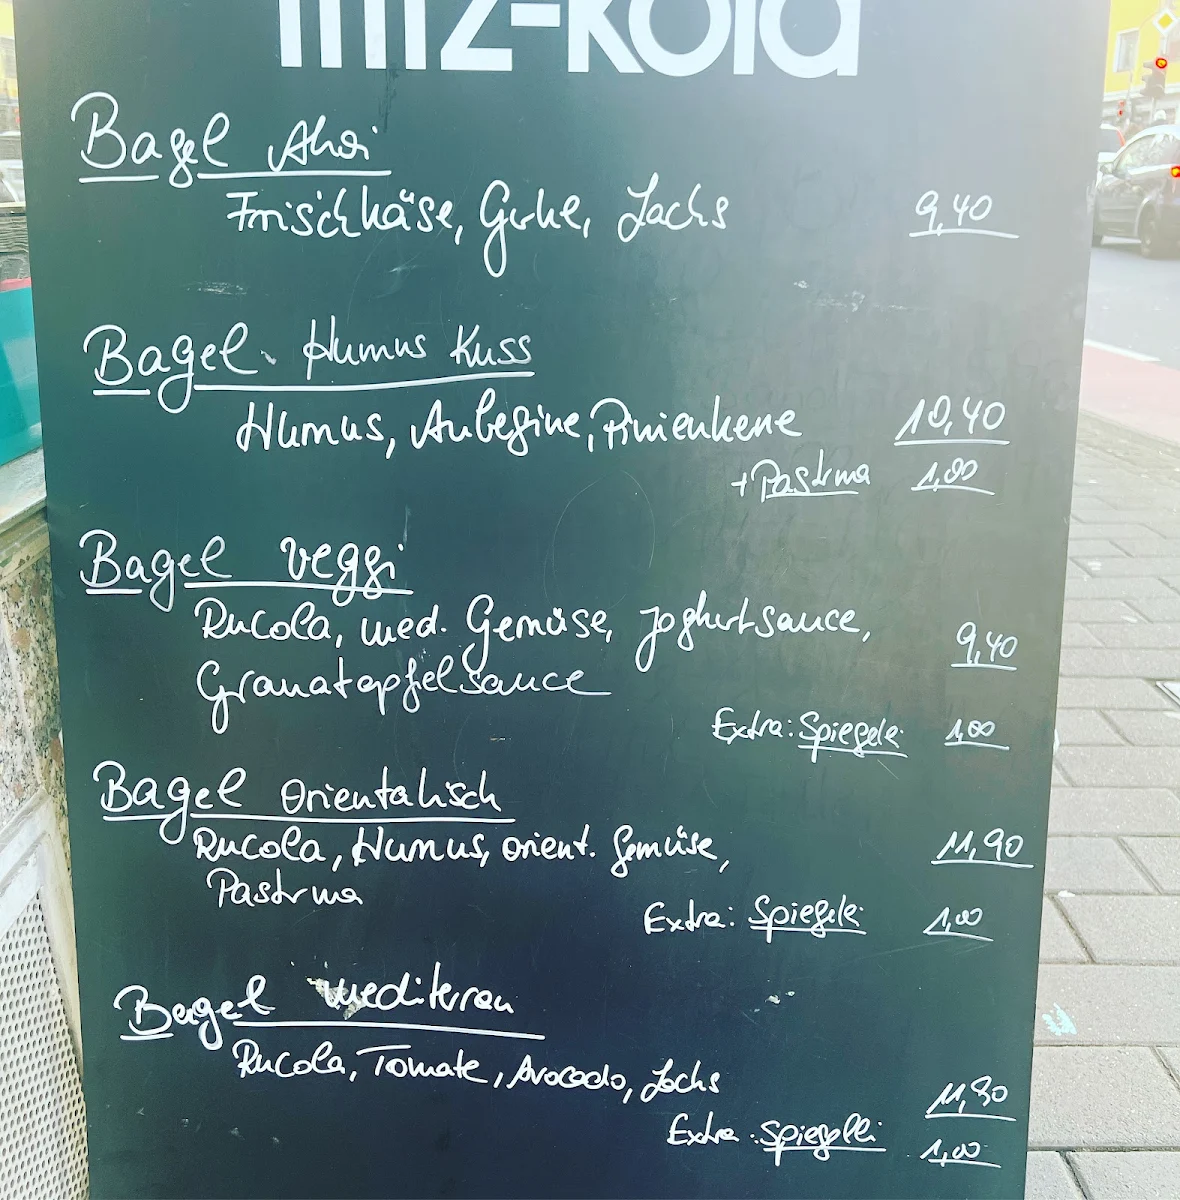 fritz-kola
Bagel Ahoi
Frischkäse, Gurke, Lachs 9,40
Bagel Humus Kuss
Humus, Aubegine, Pinienkene 10,40
+Pastrma 1,00
Bagel veggi
Rucola, med. Gemüse, Joghurtsauce,
Granatapfelsauce 9,40
Extra: Spiegelei 1,00
Bagel Orientalisch
Rucola, Humus, orient. Gemüse, 11,90
Pastrma
Extra: Spiegelei 1,00
Bagel mediterran
Rucola, Tomate, Avocado, Lachs
11,90
Extra: Spiegelei 1,00